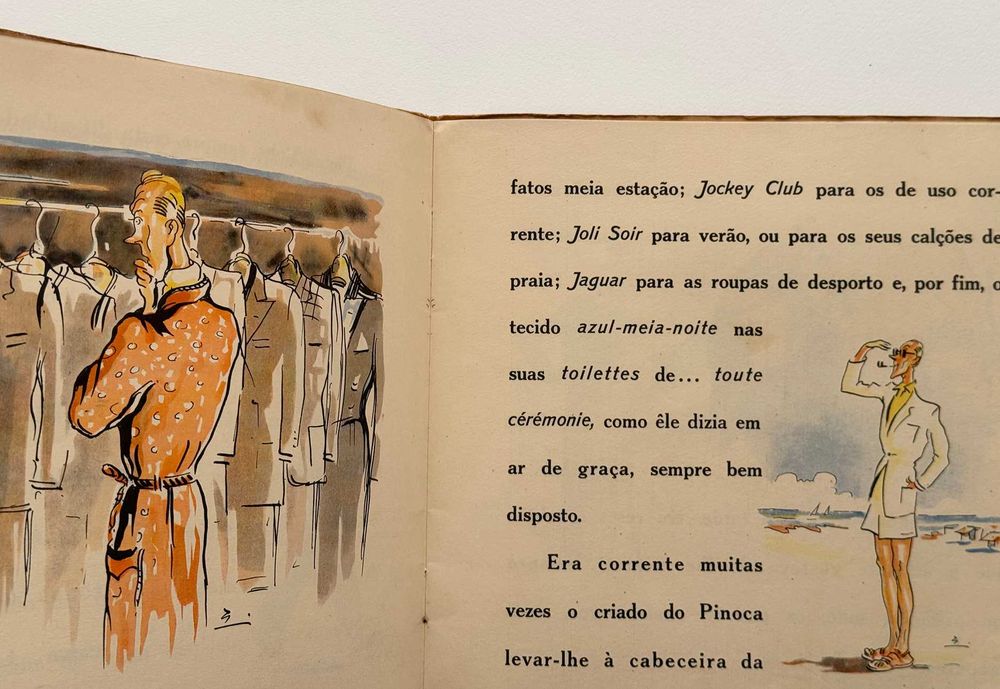 fatos meia estação; Jockey Club para os de uso cor-
rente; Joli Soir para verão, ou para os seus calções de
praia; Jaguar para as roupas de desporto e, por fim, o
tecido azul-meia-noite nas
suas toilettes de... toute
cérémonie, como êle dizia em
ar de graça, sempre bem
disposto.
Era corrente muitas
vezes o criado do Pinoca
levar-lhe à cabeceira da